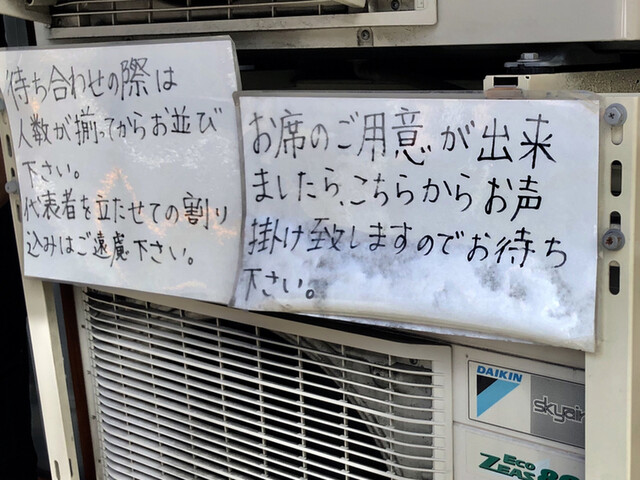 待ち合わせの際は
人数が揃ってからお並び
下さい。
代表者を立たせての割り
込みはご遠慮下さい。
お席のご用意が出来
ましたら、こちらからお声
掛け致しますのでお待ち
下さい。
DAIKIN
skyair
Eco
ZEAS